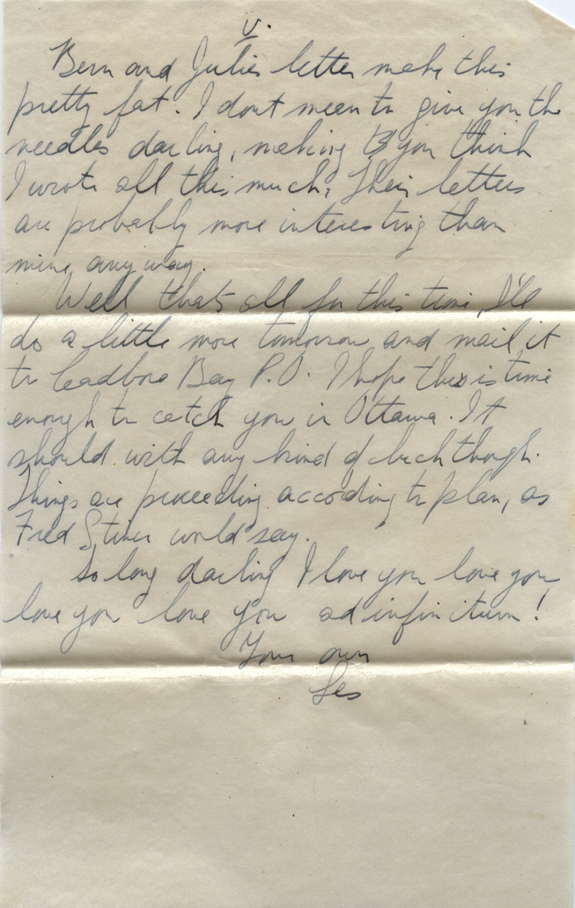 V.
Bern and Julies letter make this
pretty fat. I dont mean to give you the
needles darling, making you think
I wrote all this much, Their letters
are probably more interesting than
mine, any way.
Well thats all for this time, I'll
do a little more tomorrow and mail it
to Cadboro Bay P.O. I hope this is time
enough to catch you in Ottawa. It
should with any kind of luck though.
Things are proceeding according to plan, as
Fred would say.
So long darling I love you love you
love you love you ad infinitum!
Your own
Les